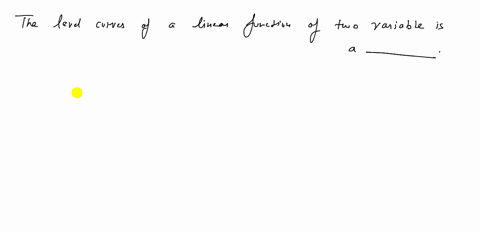 The level curves of a linear function of two variable is
a ________.